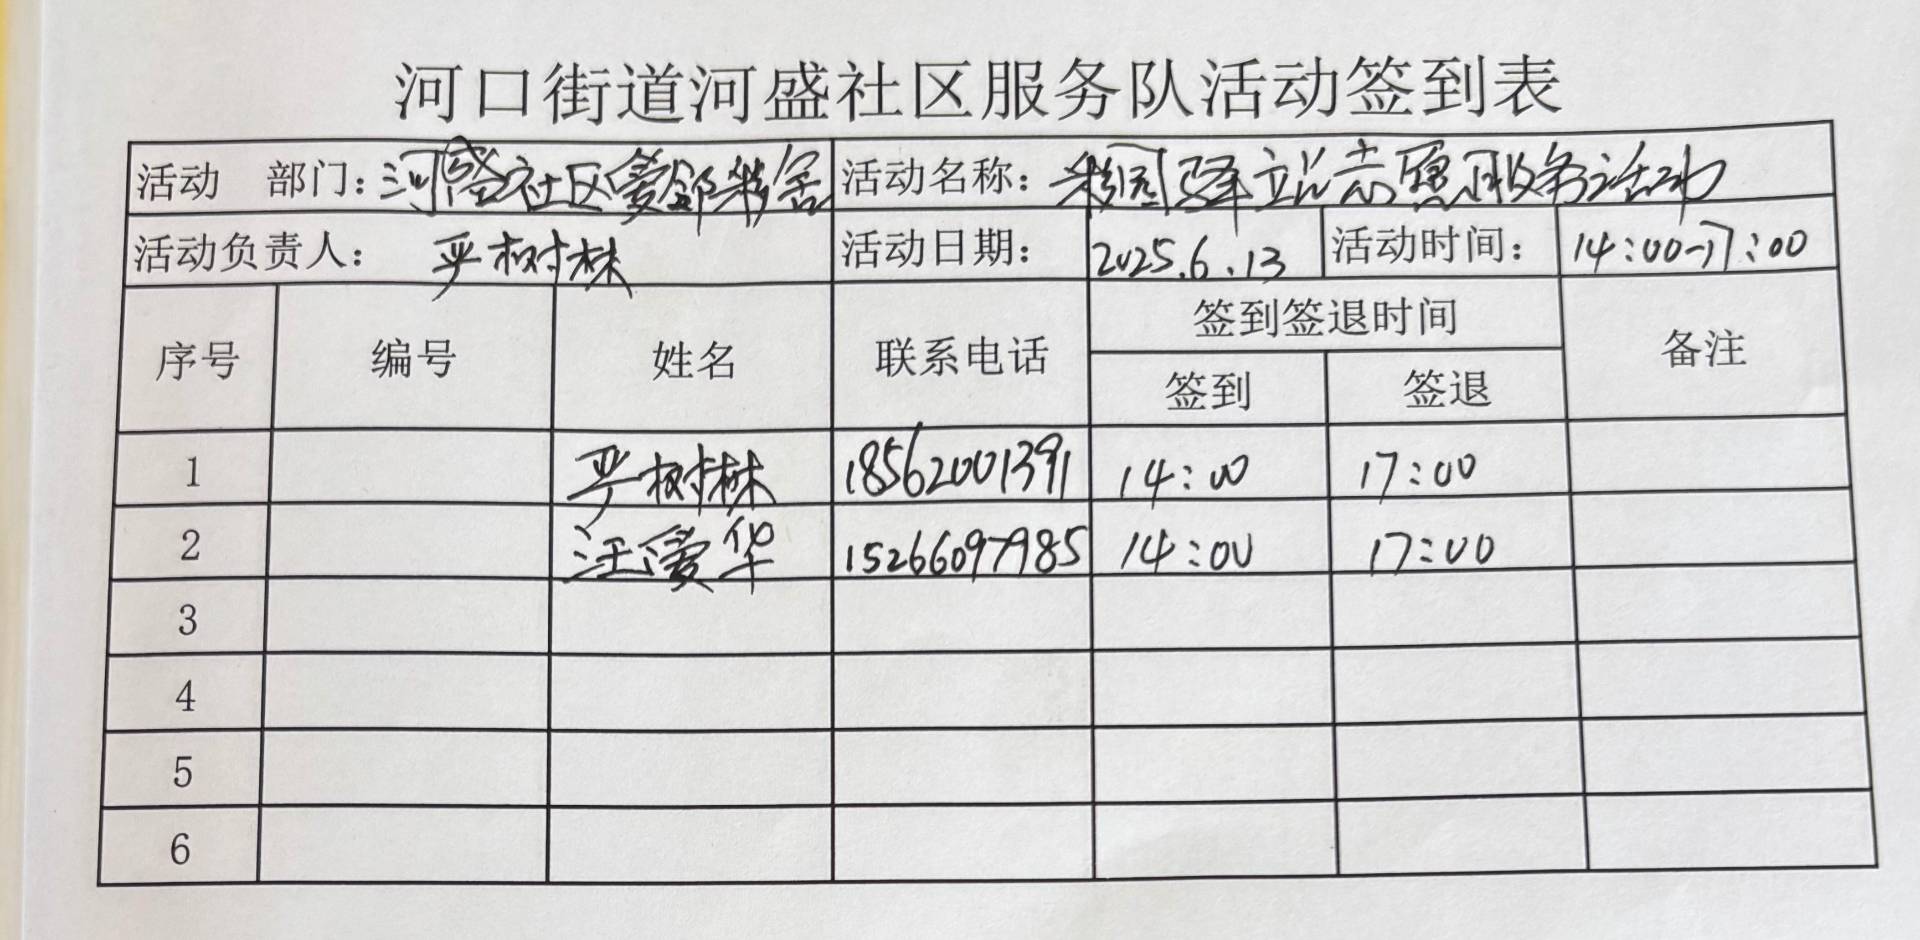 河口街道河盛社区服务队活动签到表
活动 部门：河盛社区爱邻彩舍 活动名称：彩园驿站志愿服务活动
活动负责人： 严树林 活动日期： 2025.6.13 活动时间： 14:00-17:00
序号 编号 姓名 联系电话 签到签退时间 备注
签到 签退
1 严树林 18562001391 14:00 17:00
2 汪爱华 15266097985 14:00 17:00
3
4
5
6